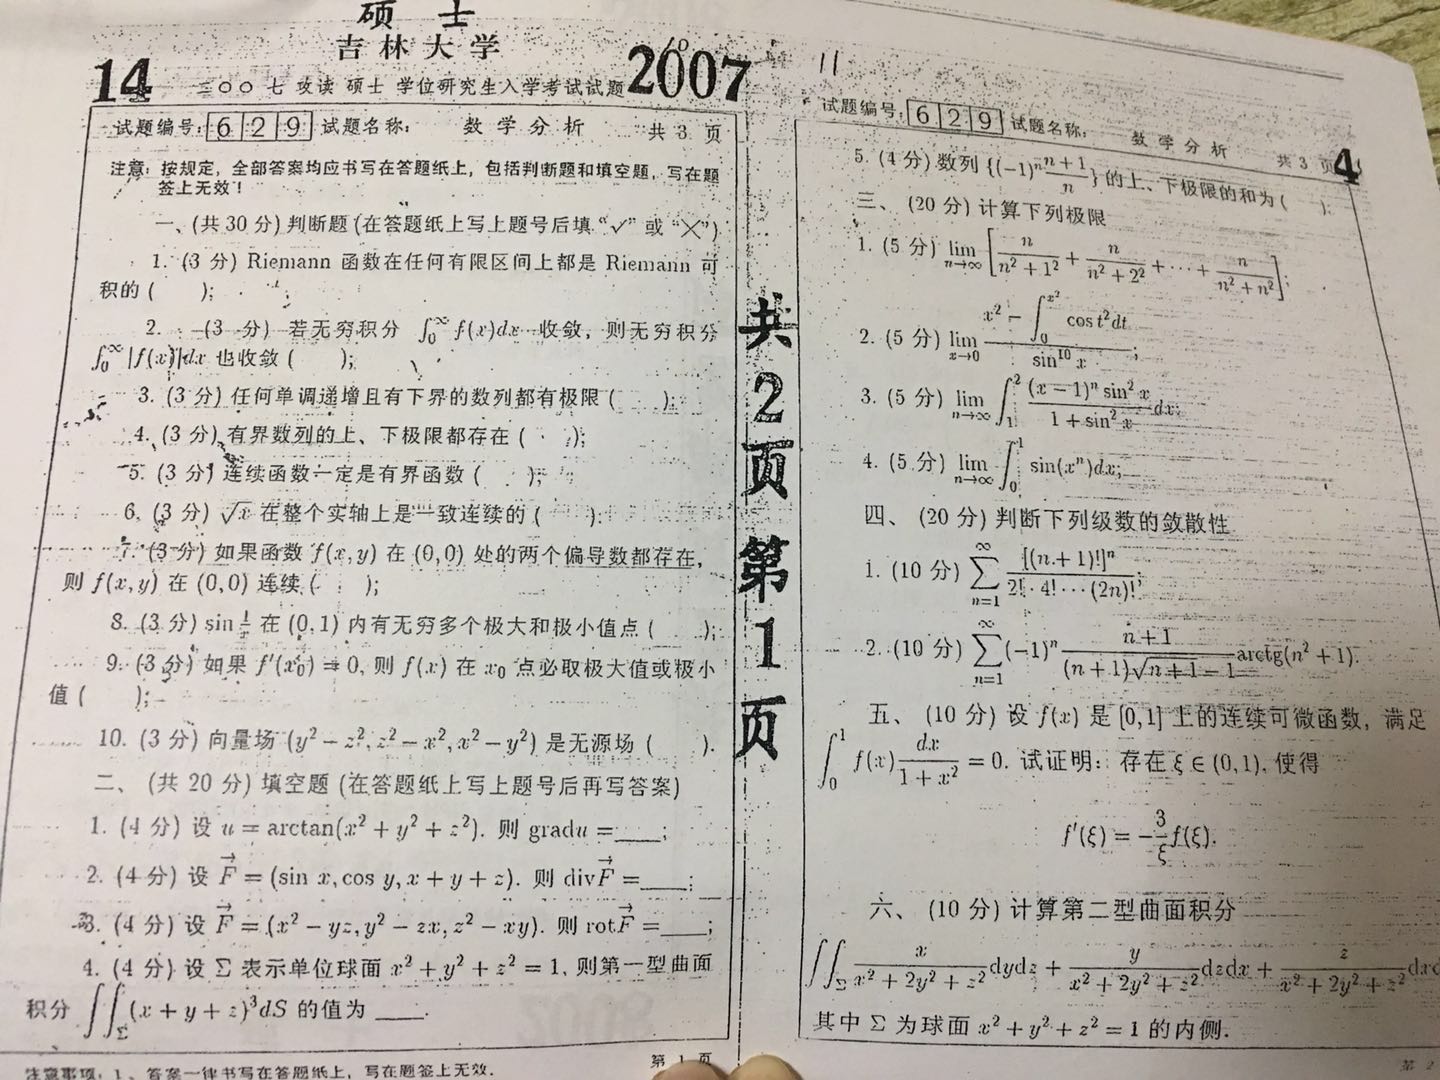 硕 士
吉林大学
14 二〇〇七 攻读 硕士 学位研究生入学考试试题 2007
试题编号: 6 2 9 试题名称: 数 学 分 析 共 3 页
注意: 按规定, 全部答案均应书写在答题纸上, 包括判断题和填空题, 写在题
签上无效!
一、(共 30 分) 判断题 (在答题纸上写上题号后填 "√" 或 "×")
1. (3 分) Riemann 函数在任何有限区间上都是 Riemann 可
积的 ( );
2. (3 分) 若无穷积分 ∫₀^∞ f(x)dx 收敛, 则无穷积分
∫₀^∞ |f(x)|dx 也收敛 ( );
3. (3 分) 任何单调递增且有下界的数列都有极限 ( );
4. (3 分) 有界数列的上、下极限都存在 ( );
5. (3 分) 连续函数一定是有界函数 ( );
6. (3 分) √x 在整个实轴上是一致连续的 ( );
7. (3 分) 如果函数 f(x,y) 在 (0,0) 处的两个偏导数都存在,
则 f(x,y) 在 (0,0) 连续 ( );
8. (3 分) sin 1/x 在 (0,1) 内有无穷多个极大和极小值点 ( );
9. (3 分) 如果 f′(x₀) = 0, 则 f(x) 在 x₀ 点必取极大值或极小
值 ( );
10. (3 分) 向量场 (y² − z², z² − x², x² − y²) 是无源场 ( ).
二、 (共 20 分) 填空题 (在答题纸上写上题号后再写答案)
1. (4 分) 设 u = arctan(x² + y² + z²). 则 gradu = ____;
2. (4 分) 设 F⃗ = (sin x, cos y, x + y + z). 则 divF⃗ = ____;
3. (4 分) 设 F⃗ = (x² − yz, y² − zx, z² − xy). 则 rotF⃗ = ____;
4. (4 分) 设 Σ 表示单位球面 x² + y² + z² = 1, 则第一型曲面
积分 ∬_Σ (x + y + z)³dS 的值为 ____.
第 1 页
注意事项: 1、答案一律书写在答题纸上, 写在题签上无效.
共
2
页
第
1
页
11
试题编号: 6 2 9 试题名称: 数 学 分 析 共 3 页 4
5. (4 分) 数列 {(−1)ⁿ (n+1)/n} 的上、下极限的和为 ( );
三、 (20 分) 计算下列极限
1. (5 分) lim_{n→∞} [n/(n² + 1²) + n/(n² + 2²) + ⋯ + n/(n² + n²)];
2. (5 分) lim_{x→0} (x² − ∫₀^{x²} cos t²dt)/(sin¹⁰ x);
3. (5 分) lim_{n→∞} ∫₁² ((x − 1)ⁿ sin² x)/(1 + sin² x) dx;
4. (5 分) lim_{n→∞} ∫₀¹ sin(xⁿ)dx;
四、 (20 分) 判断下列级数的敛散性
1. (10 分) ∑_{n=1}^∞ [(n + 1)!]ⁿ/(2! · 4! ⋯ (2n)!);
2. (10 分) ∑_{n=1}^∞ (−1)ⁿ (n + 1)/((n + 1)√(n + 1) − 1) arctg(n² + 1).
五、 (10 分) 设 f(x) 是 [0,1] 上的连续可微函数, 满足
∫₀¹ f(x) dx/(1 + x²) = 0. 试证明: 存在 ξ ∈ (0,1), 使得
f′(ξ) = −(3/ξ) f(ξ).
六、 (10 分) 计算第二型曲面积分
∬_Σ x/(x² + 2y² + z²) dydz + y/(x² + 2y² + z²) dzdx + z/(x² + 2y² + z²)
其中 Σ 为球面 x² + y² + z² = 1 的内侧.
第 2